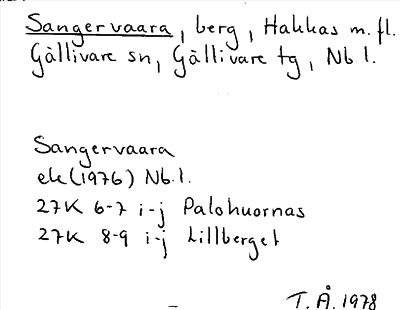 Sangervaara, berg, Hakkas m. fl.
Gällivare sn, Gällivare tg, Nb l.
Sangervaara
ek (1976) Nb.l.
27K 6-7 i-j Palohuornas
27K 8-9 i-j Lillberget
T.Å. 1978